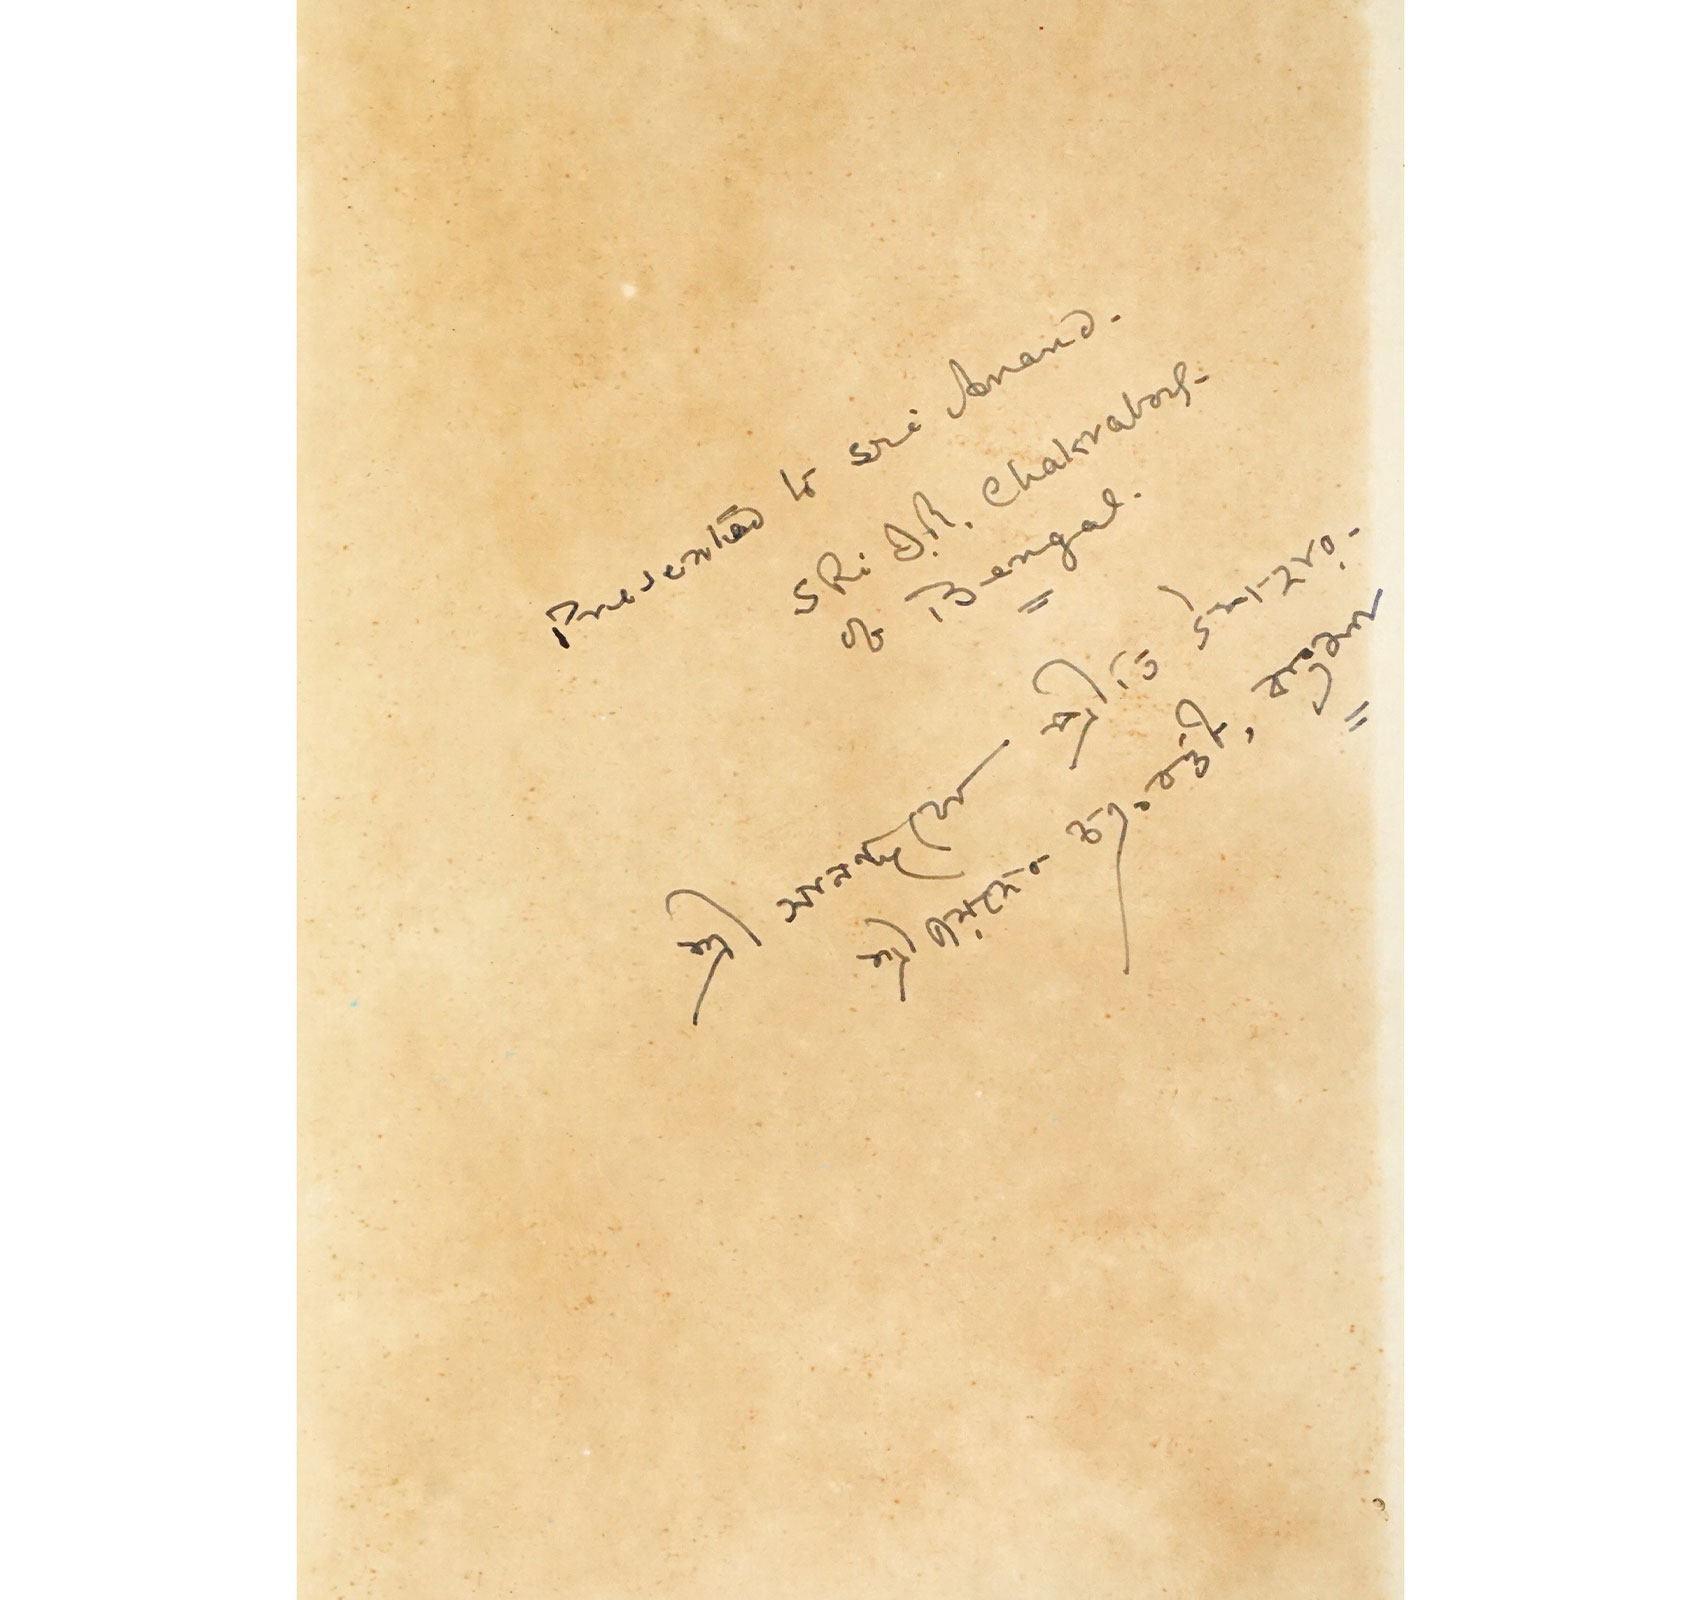 Presented to Sri Anand.
SRi D.R. Chakraborty-
of Bengal.
শ্রী আনন্দকে প্রীতি উপহার।
শ্রী চক্রবর্ত্তী,